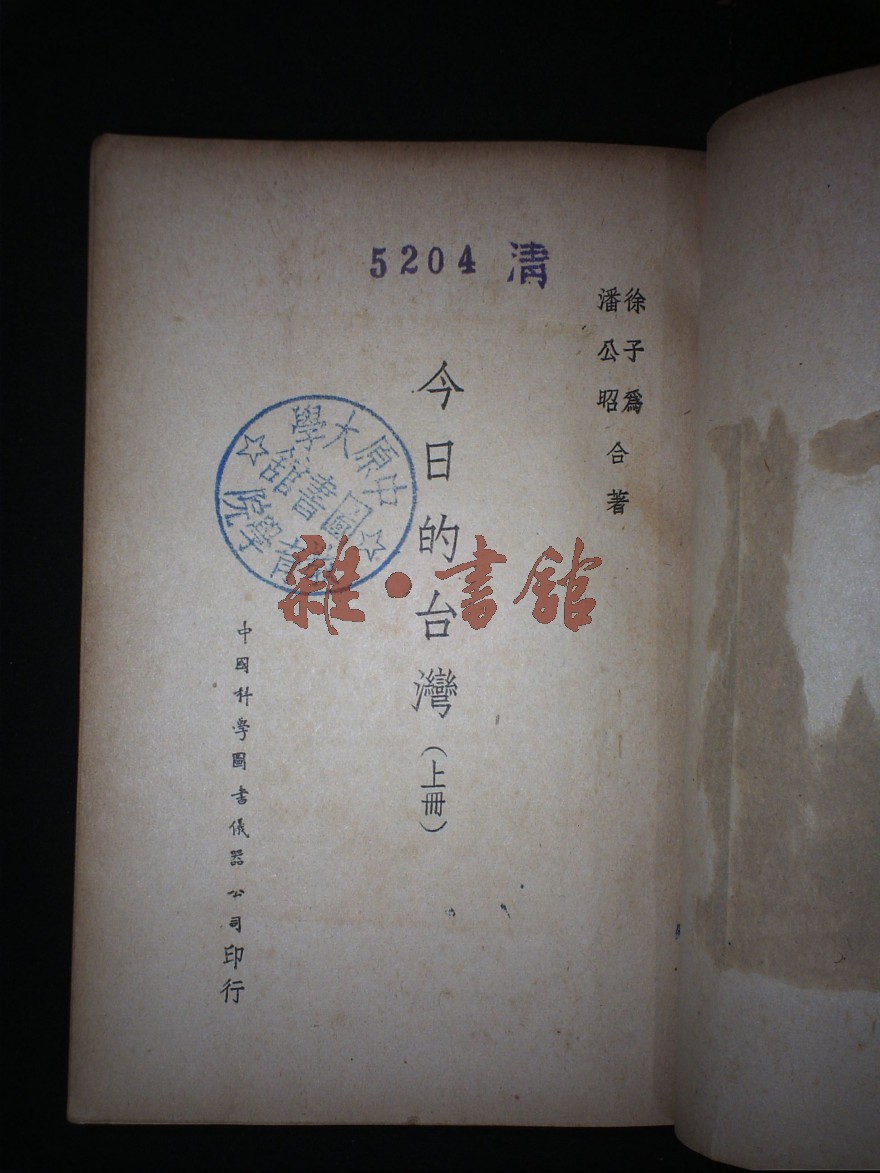 5204 清
徐子為
潘公昭
合著
今日的台灣（上冊）
中原大學
教育學院
圖書館
中國科學圖書儀器公司印行
雜·書館